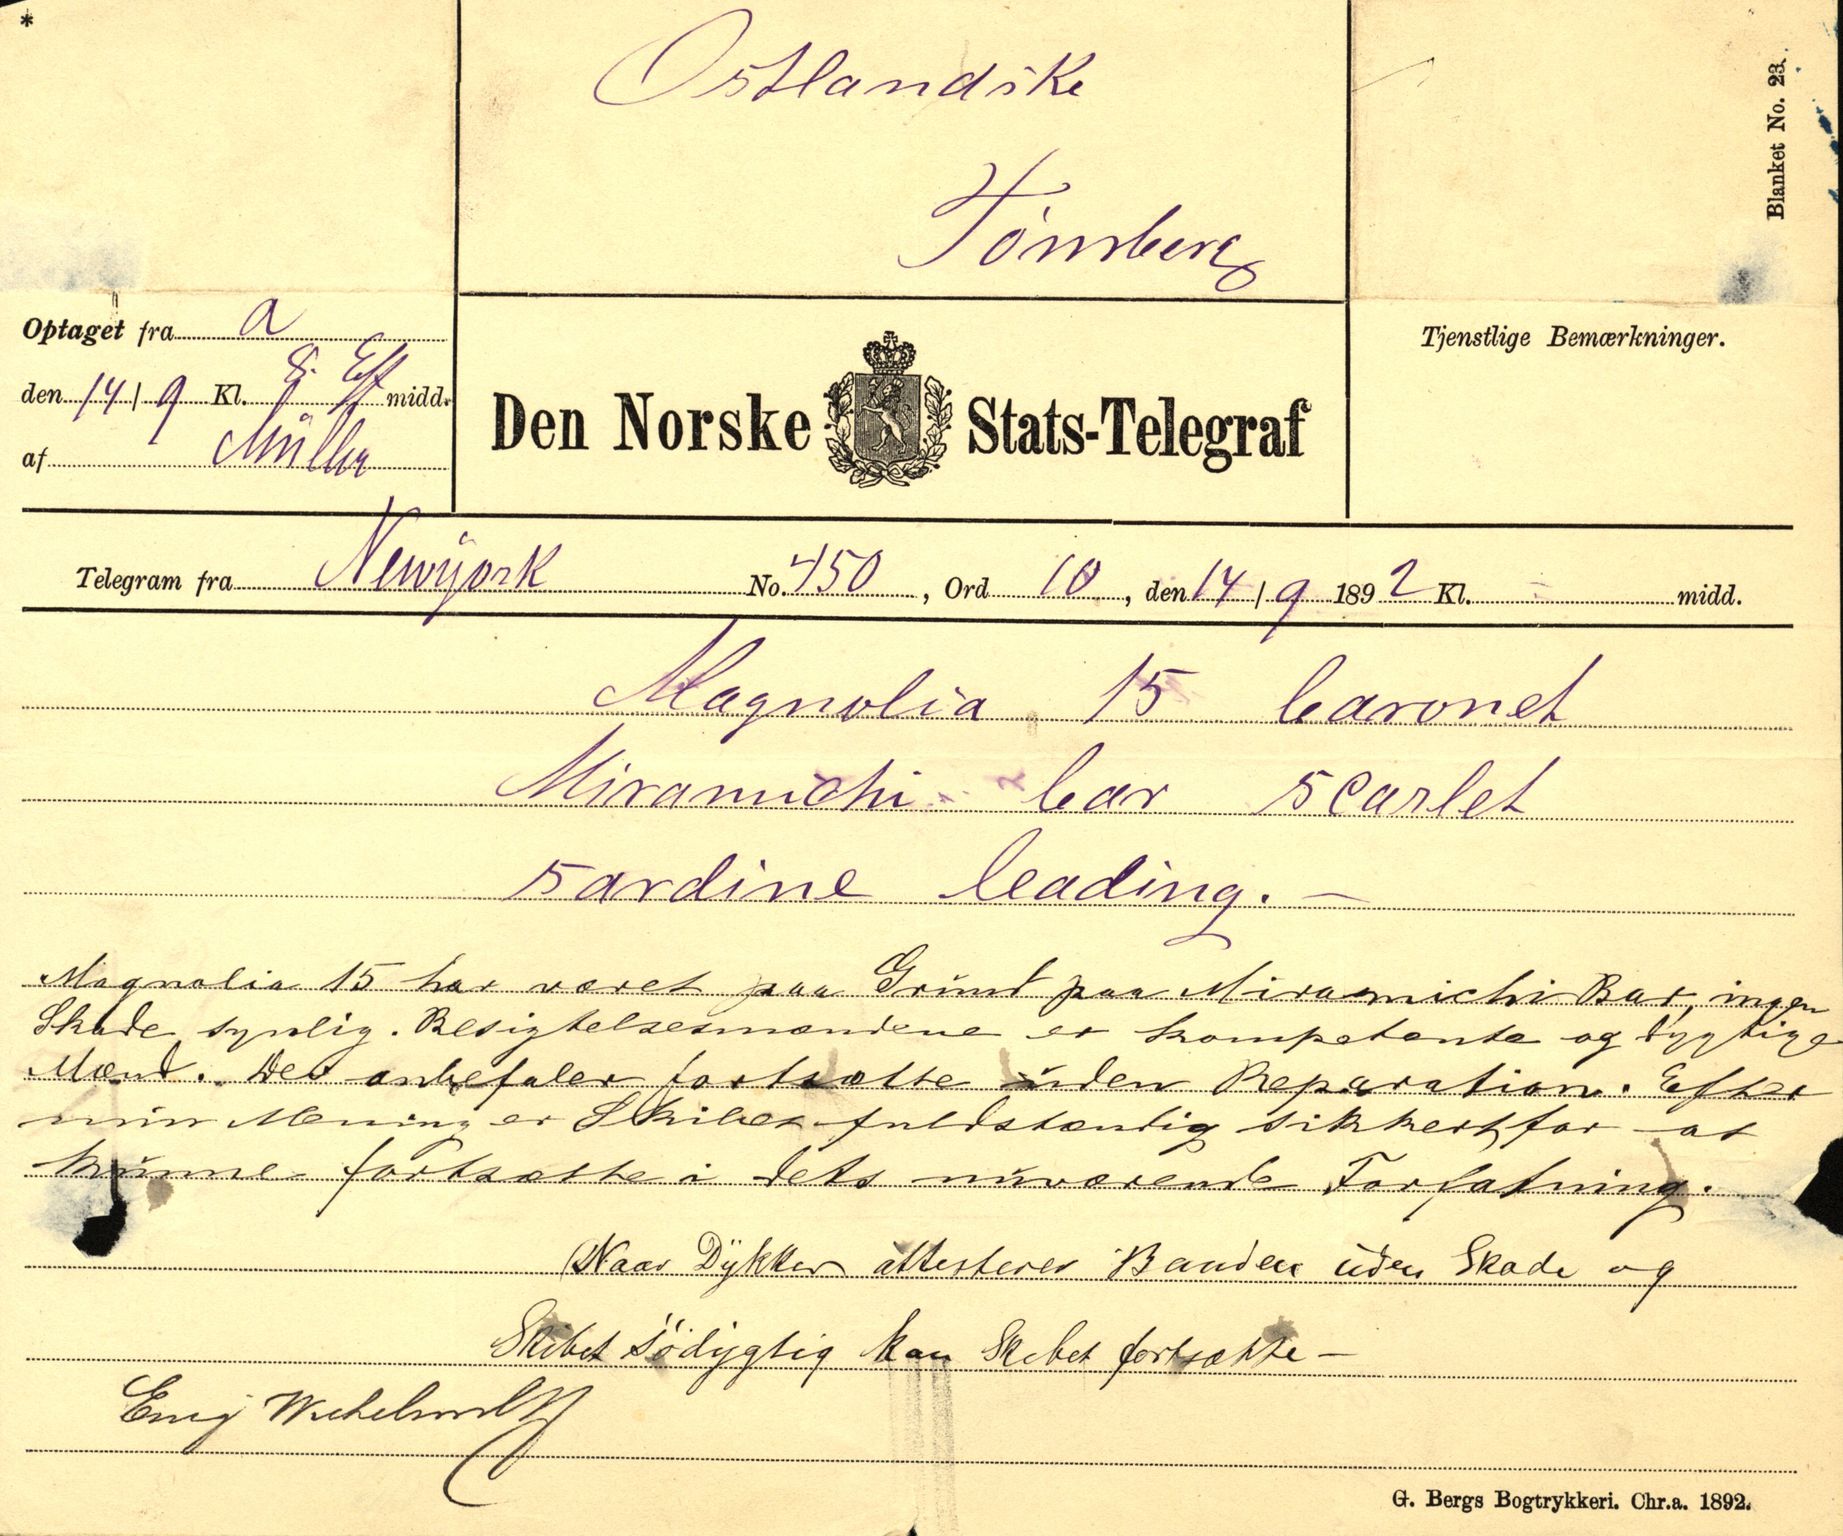 *
Ostlandske
Tönsberg
Blanket No. 23.
Optaget fra a
den 14/9 Kl. 8. Eft midd.
af Müller
Den Norske Stats-Telegraf
Tjenstlige Bemærkninger.
Telegram fra Newyork No. 450, Ord 10, den 14/9 1892 Kl. – midd.
Magnolia 15 baronet
Miramichi bar scarlet
sardine leading. —
Magnolia 15 har været paa Grund paa Miramichi Bar, ingen
Skade synlig. Besigtelsesmændene er kompetente og dygtige
Mænd. De anbefaler fortsætte uden Reparation. Efter
min Mening er Skibet fuldstændig sikkert for at
kunne fortsætte i dets nuværende Forfatning.
Naar Dykker attesterer Bunden uden Skade og
Skibet södygtig kan Skibet fortsætte —
Enig
G. Bergs Bogtrykkeri. Chr.a. 1892.